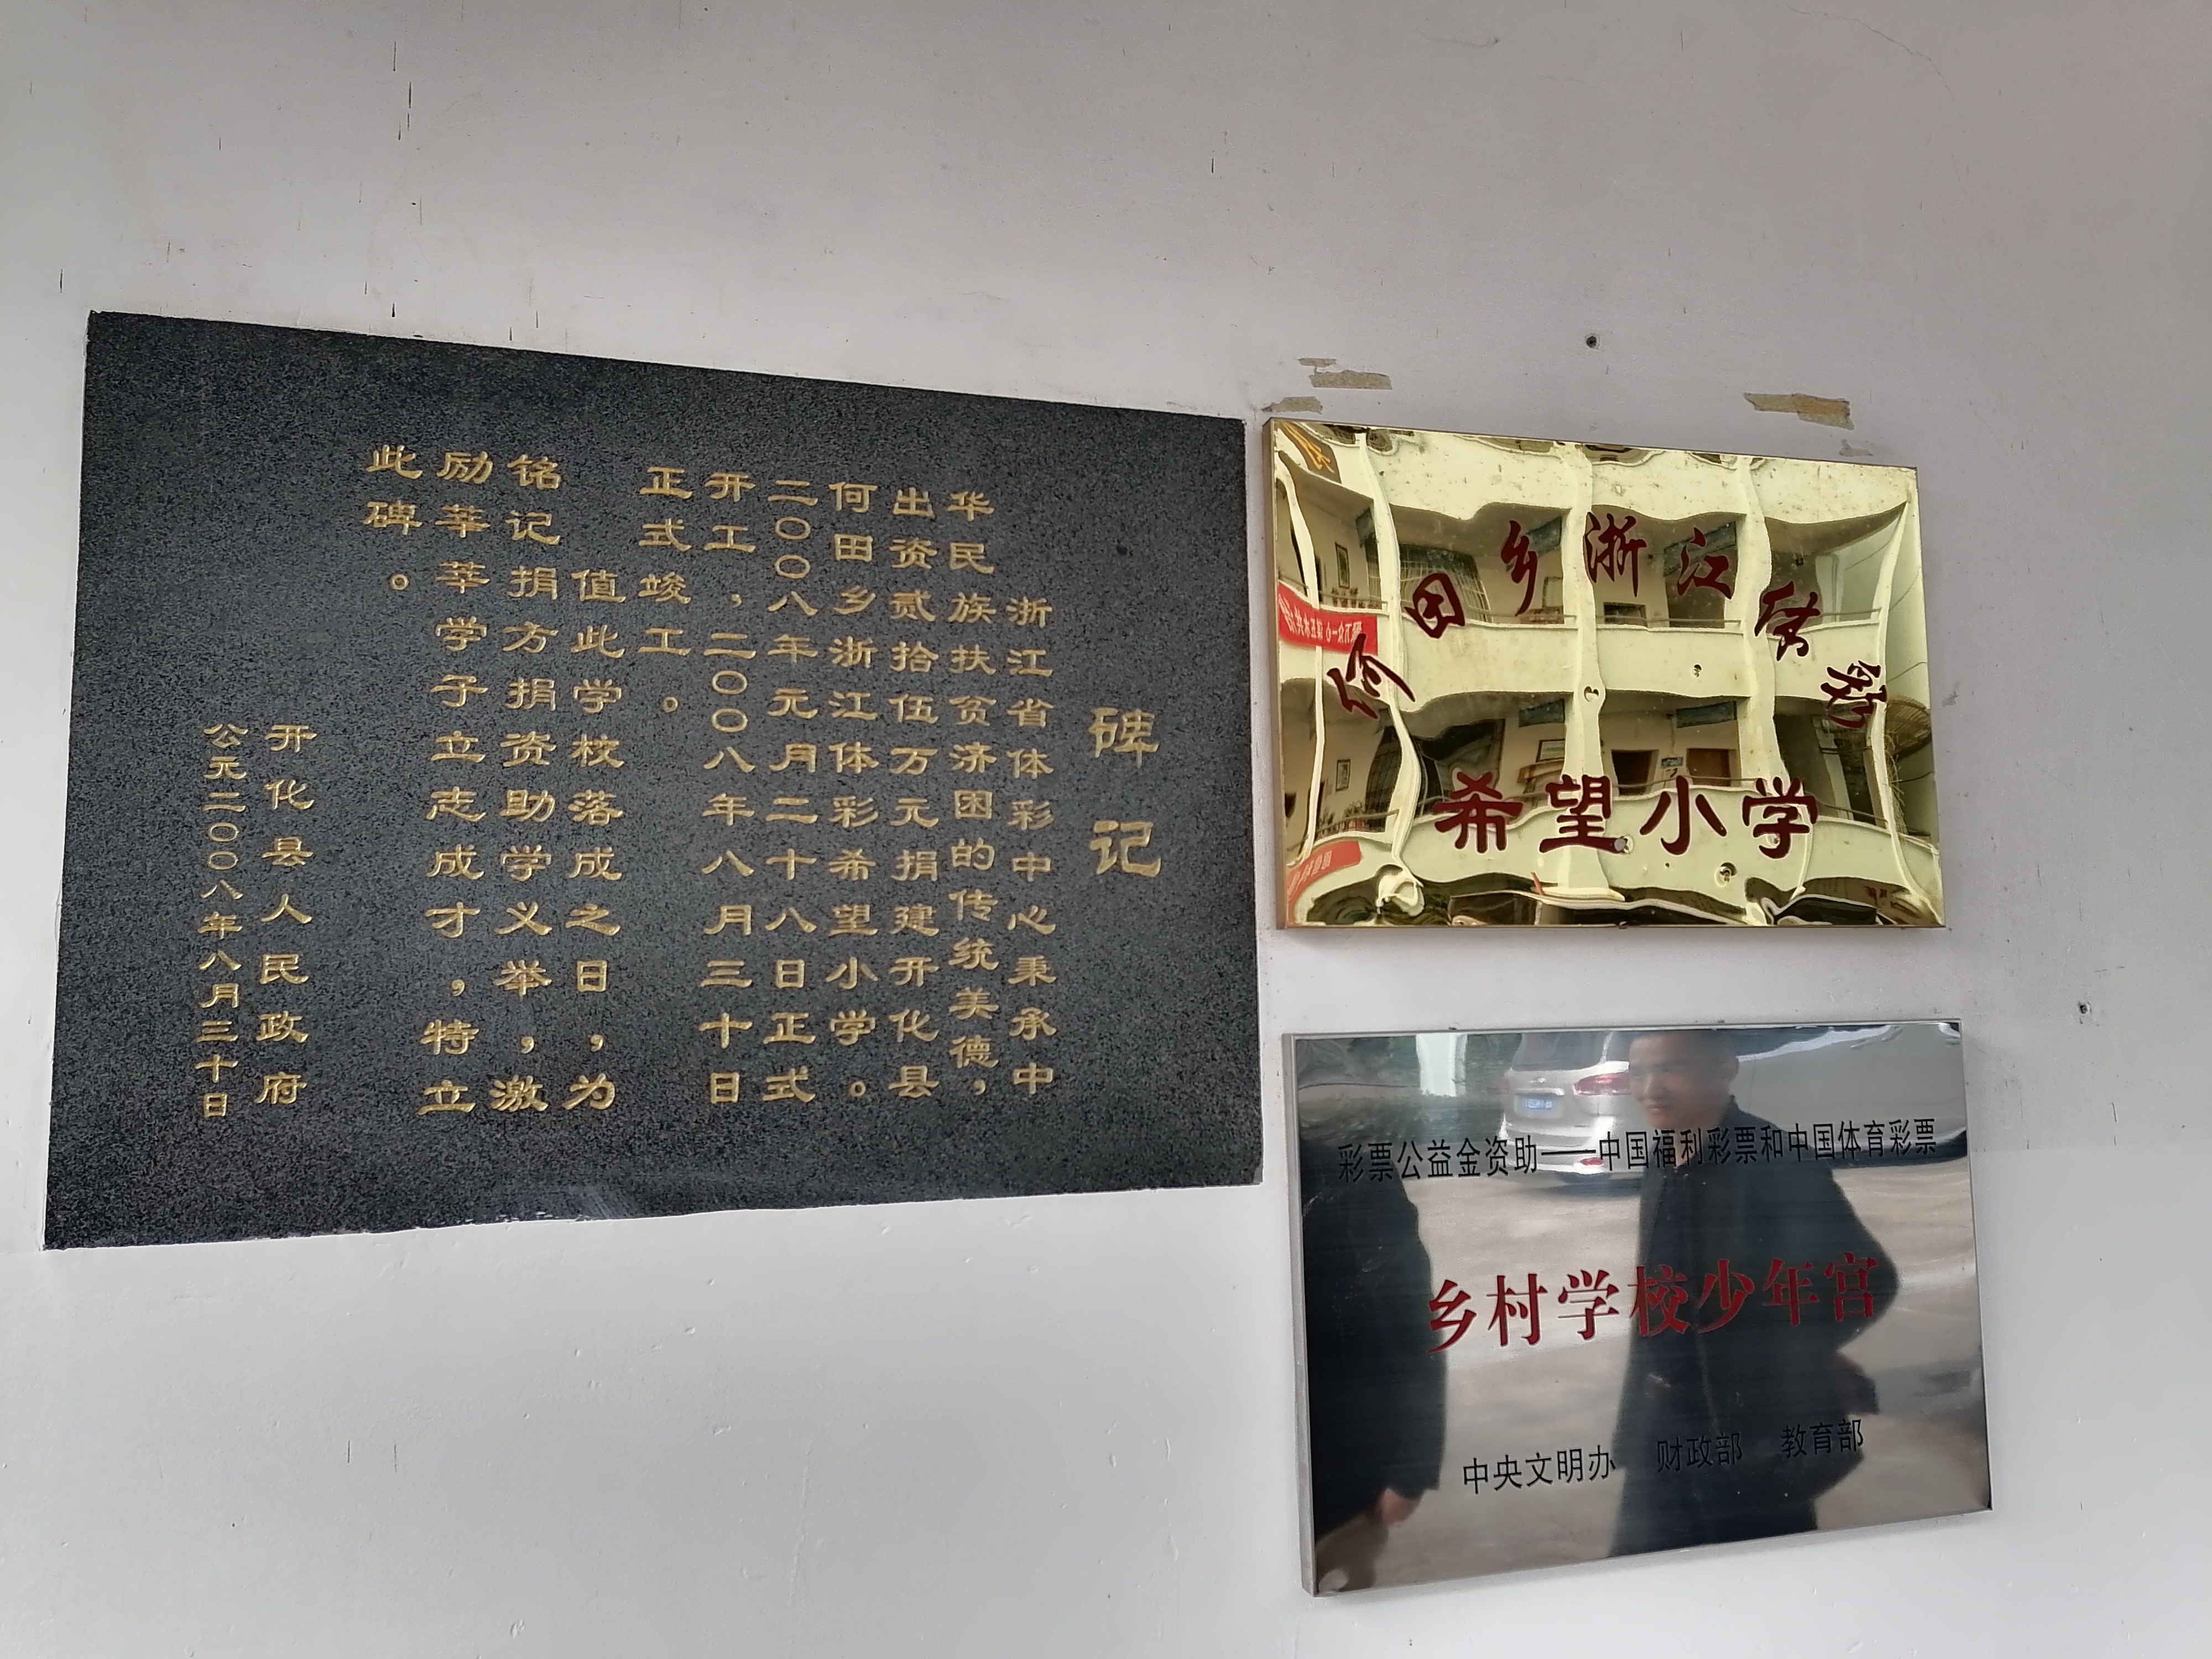 碑记
浙江省体彩中心秉承中
华民族扶贫济困的传统美德，
出资贰拾伍万元捐建开化县
何田乡浙江体彩希望小学。
二〇〇八年元月二十八日正式
开工，二〇〇八年八月三十日
正式竣工。
值此学校落成之日，为
铭记捐方捐资助学义举，激
励莘莘学子立志成才，特立
此碑。
开化县人民政府
公元二〇〇八年八月三十日
何田乡浙江体彩
希望小学
彩票公益金资助——中国福利彩票和中国体育彩票
乡村学校少年宫
中央文明办 财政部 教育部